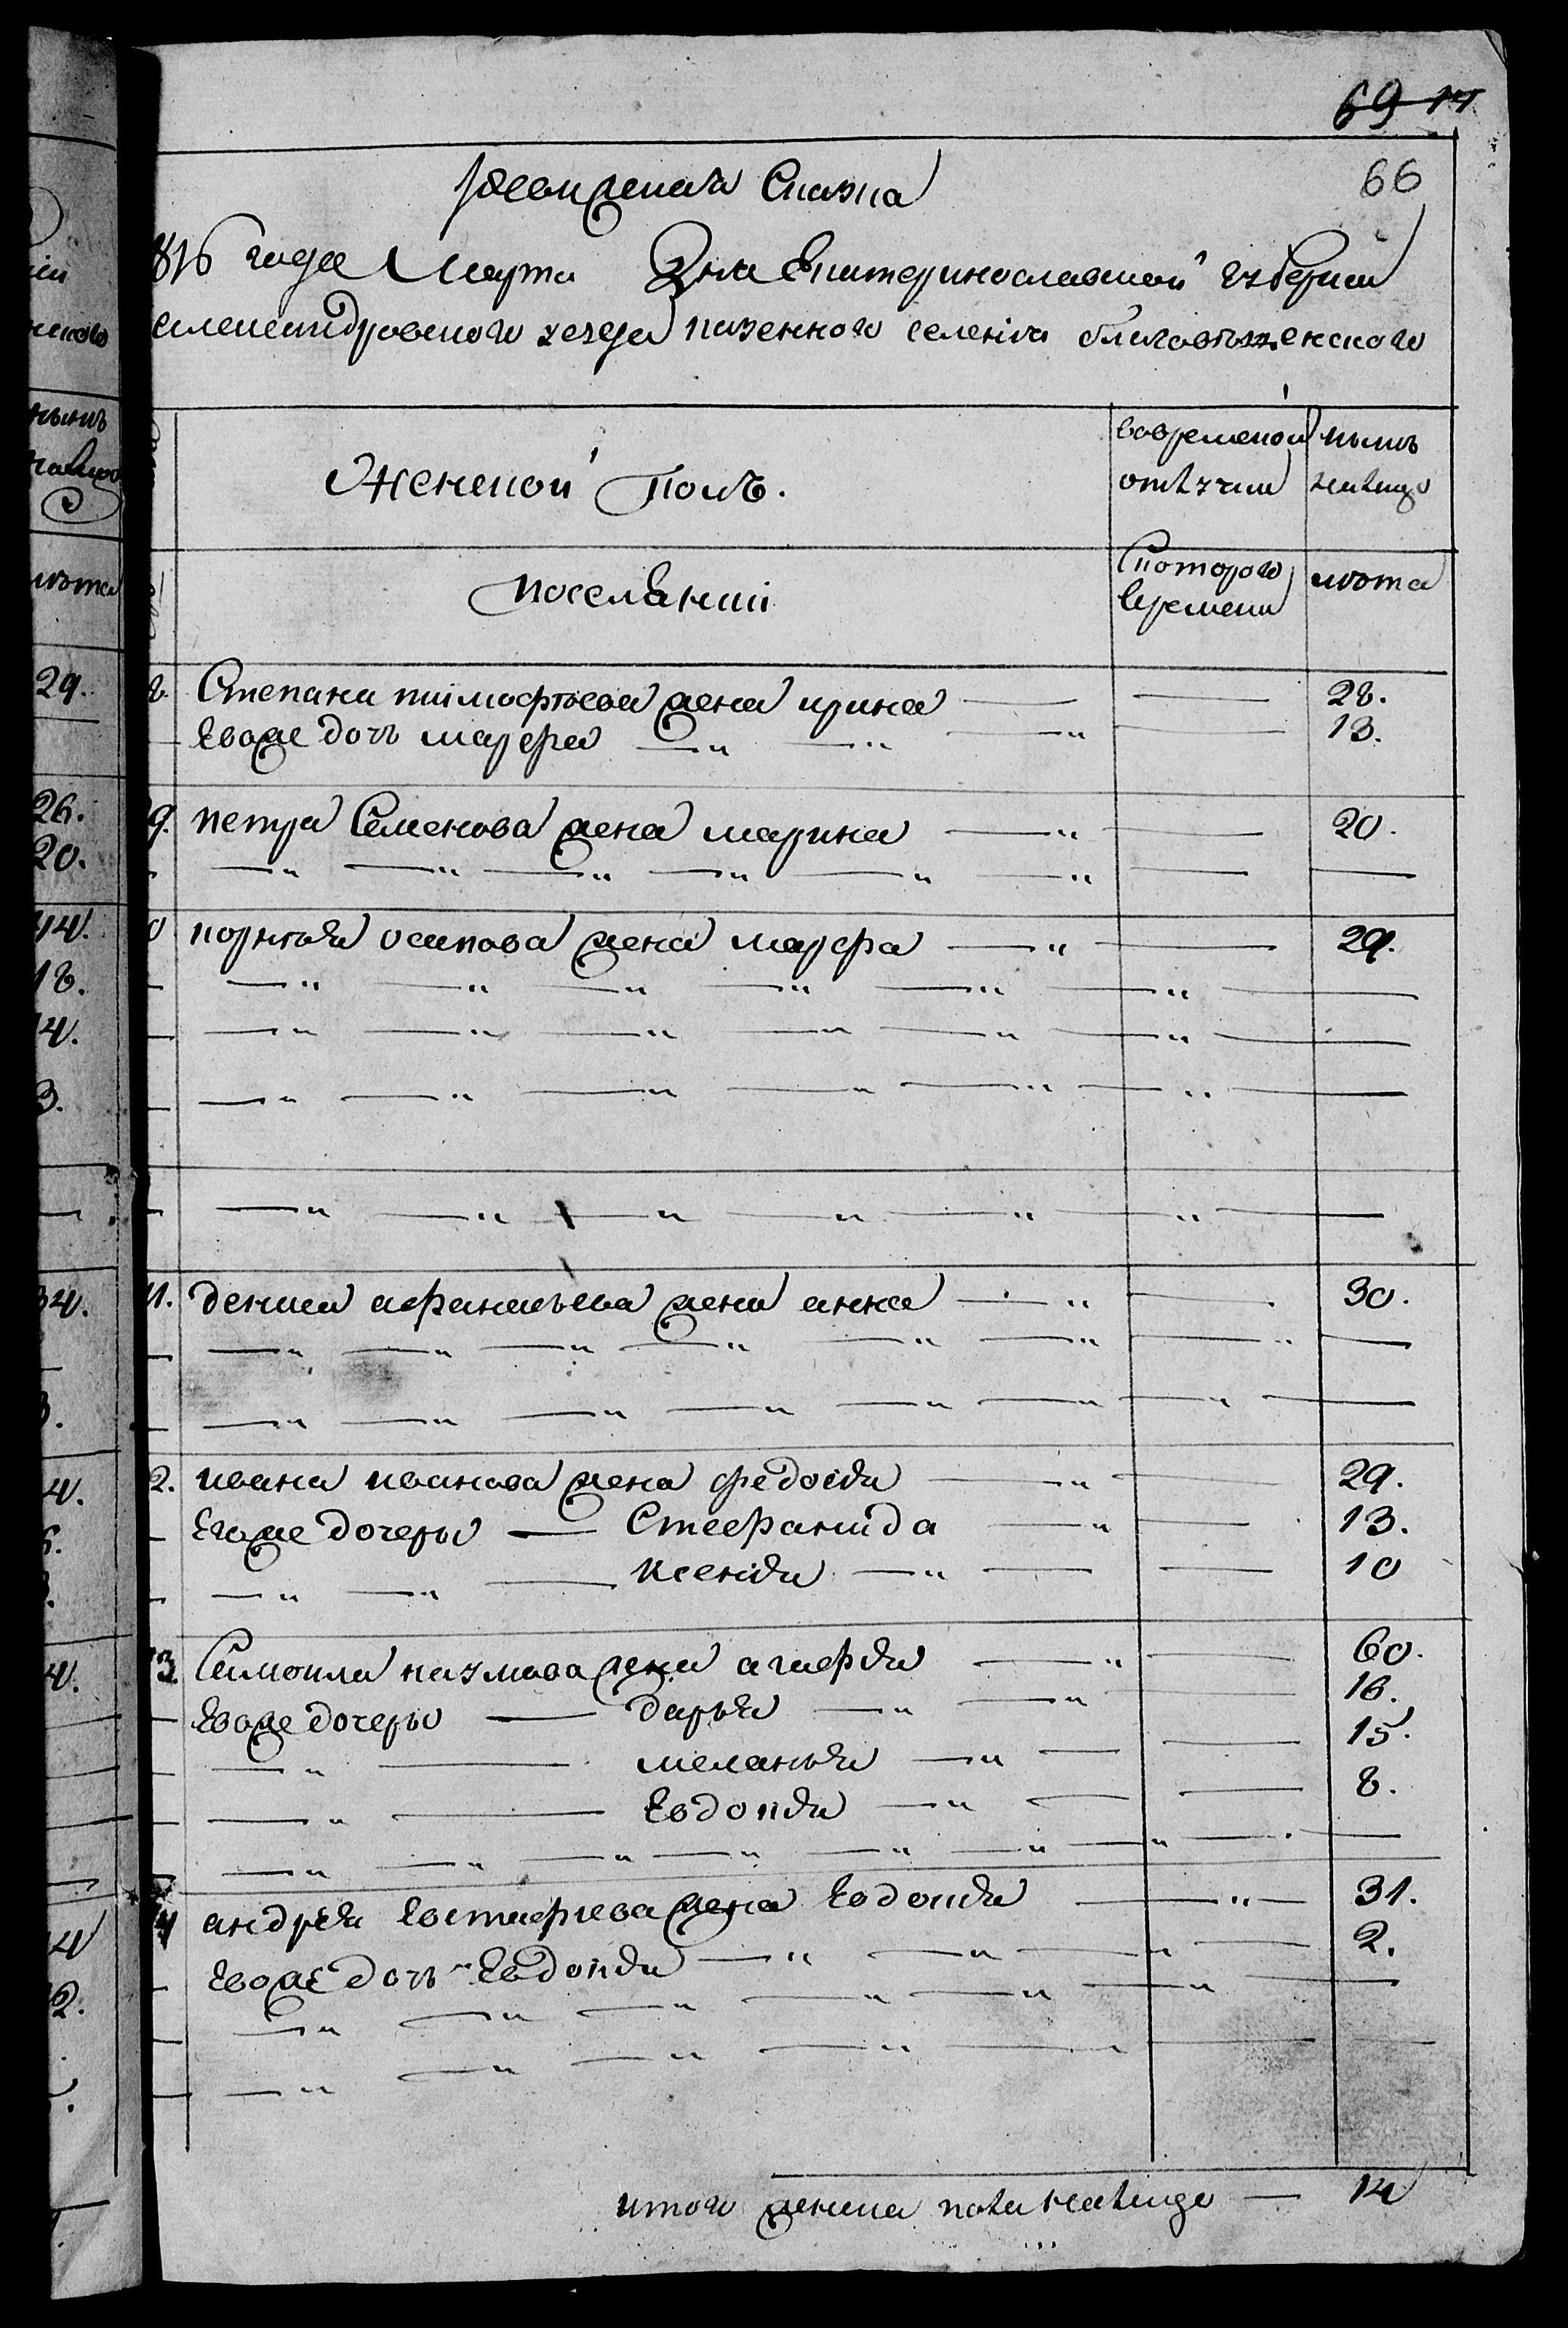 69 14
66
Ревижская Сказка
816 года Марта Дня Екатеринославской губернии
Александровского уезда казенного селенія благовѣщенского
Женской Полъ.
вовременой отлучки
нынѣ налицо
поселянки
Скоторого времени
лѣта
8. Степана тимофѣева жена ирина 28.
Евоже дочь марфа 13.
9. петра Семенова жена марина 20.
0 корнѣя осипова жена марфа 29.
11. дениса афанасьева жена анна 30.
2. ивана иванова жена федосія 29.
Егоже дочеры Стефанида 13.
ксенія 10
13. Самоила казмова жена агафія 60.
Евоже дочеры дарья 16.
меланья 15.
Евдокія 8.
4 андрея Евстафиева жена Евдокія 31.
Евоже дочь Евдокія 2.
итого женска пола налицо 14
29.
26.
20.
44.
18.
14.
3.
34.